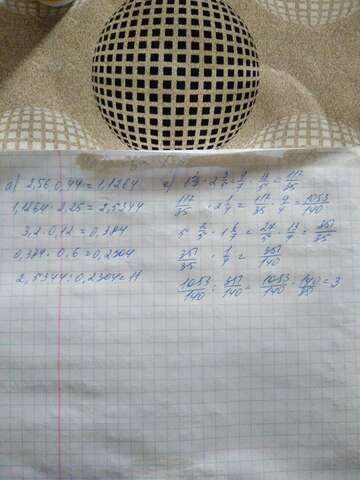 а) 2,56·0,44=1,1264
1,1264·2,25=2,5344
3,2·0,12=0,384
0,384·0,6=0,2304
2,5344:0,2304=11
117/35 · 2 1/4 = 117/35 · 9/4 = 1053/140
5 2/5 · 1 6/7 = 27/5 · 13/7 = 351/35
351/35 · 1/4 = 351/140
1053/140 : 351/140 = 1053/140 ·
= 3